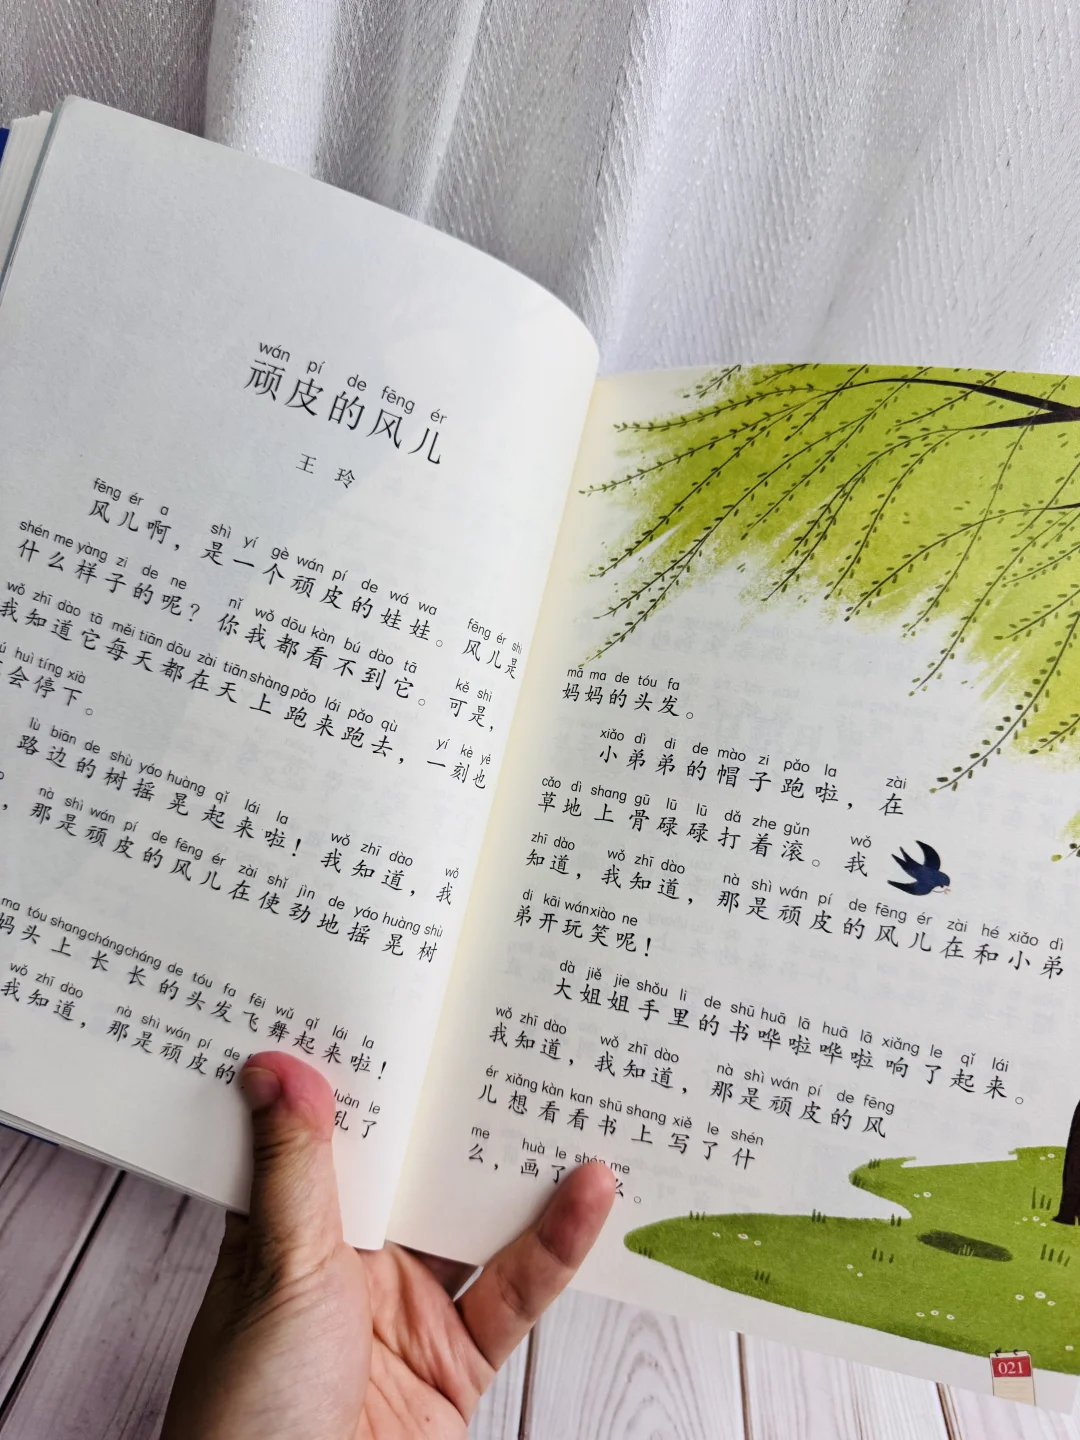 wán pí de fēng ér
顽皮的风儿
王 玲
fēng ér a shì yí gè wán pí de wá wa fēng ér shì
风儿啊，是一个顽皮的娃娃。风儿是
shén me yàng zi de ne nǐ wǒ dōu kàn bú dào tā kě shì
什么样子的呢？你我都看不到它。可是，
wǒ zhī dào tā měi tiān dōu zài tiān shàng pǎo lái pǎo qù yí kè yě
我知道它每天都在天上跑来跑去，一刻也
huì tíng xià
会停下。
lù biān de shù yáo huàng qǐ lái la wǒ zhī dào wǒ
路边的树摇晃起来啦！我知道，我
nà shì wán pí de fēng ér zài shǐ jìn de yáo huàng shù
，那是顽皮的风儿在使劲地摇晃树
ma tóu shang cháng cháng de tóu fa fēi wǔ qǐ lái la
妈头上长长的头发飞舞起来啦！
wǒ zhī dào nà shì wán pí de
我知道，那是顽皮的
luàn le
乱了
mā ma de tóu fa
妈妈的头发。
xiǎo dì di de mào zi pǎo la zài
小弟弟的帽子跑啦，在
cǎo dì shang gū lū lū dǎ zhe gǔn wǒ
草地上骨碌碌打着滚。我
zhī dào wǒ zhī dào nà shì wán pí de fēng ér zài hé xiǎo dì
知道，我知道，那是顽皮的风儿在和小弟
di kāi wán xiào ne
弟开玩笑呢！
dà jiě jie shǒu li de shū huā lā huā lā xiǎng le qǐ lái
大姐姐手里的书哗啦哗啦响了起来。
wǒ zhī dào wǒ zhī dào nà shì wán pí de fēng
我知道，我知道，那是顽皮的风
ér xiǎng kàn kan shū shang xiě le shén
儿想看看书上写了什
me huà le shén me
么，画了 么。
021